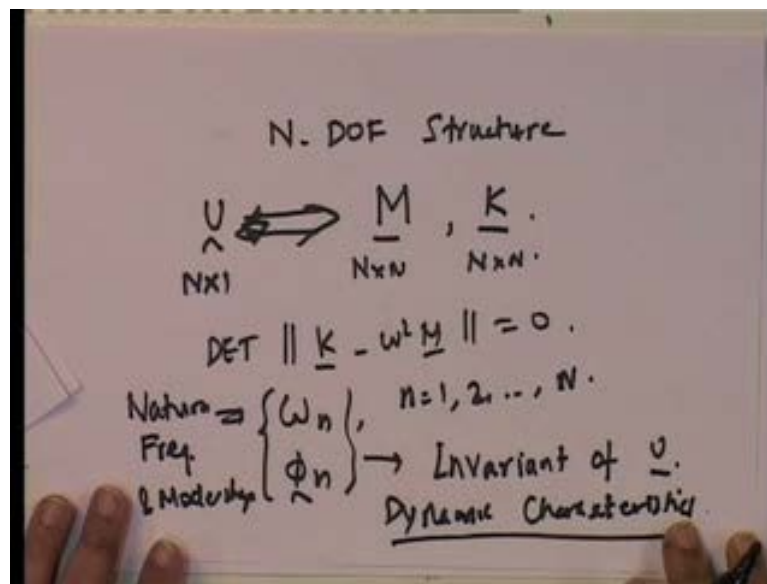 N-DOF Structure
U ⟺ M , K .
NX1 NXN NXN.
DET || K - ω² M || = 0 .
Natural ⇒ { ωn } , n=1, 2, ..., N.
Freq.
& Modeshape { ϕn } → Invariant of U.
Dynamic Characteristics